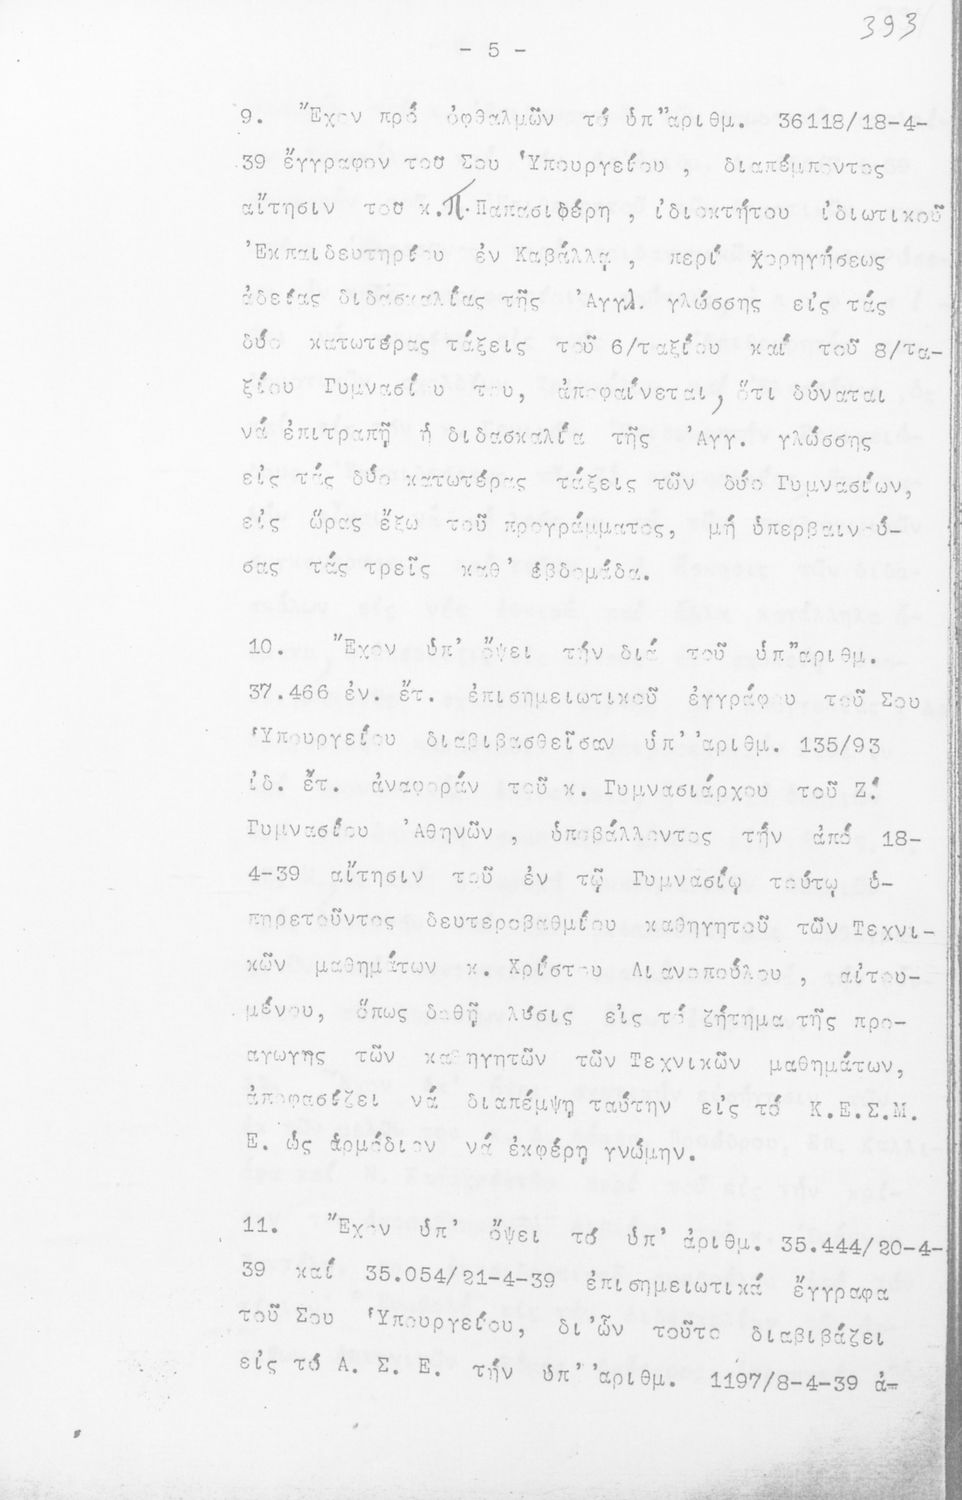 393
- 5 -
9. Ἔχον πρό ὀφθαλμῶν τό ὑπ"ἀριθμ. 36118/18-4-
39 ἔγγραφον τοῦ Σου Ὑπουργείου , διαπέμποντος
αἴτησιν τοῦ κ.Π. Παπασιδέρη , ἰδιοκτήτου ἰδιωτικοῦ
Ἐκπαιδευτηρίου ἐν Καβάλλᾳ , περί χορηγήσεως
ἀδείας διδασκαλίας τῆς Ἀγγλ. γλώσσης εἰς τάς
δύο κατωτέρας τάξεις τοῦ 6/ταξίου καί τοῦ 8/τα-
ξίου Γυμνασίου του, ἀποφαίνεται, ὅτι δύναται
νά ἐπιτραπῇ ἡ διδασκαλία τῆς Ἀγγ. γλώσσης
εἰς τάς δύο κατωτέρας τάξεις τῶν δύο Γυμνασίων,
εἰς ὥρας ἔξω τοῦ προγράμματος, μή ὑπερβαινού-
σας τάς τρεῖς καθ' ἑβδομάδα.
10. Ἔχον ὑπ' ὄψει τήν διά τοῦ ὑπ"ἀριθμ.
37.466 ἐν. ἔτ. ἐπισημειωτικοῦ ἐγγράφου τοῦ Σου
Ὑπουργείου διαβιβασθεῖσαν ὑπ' ἀριθμ. 135/93
ἰδ. ἔτ. ἀναφοράν τοῦ κ. Γυμνασιάρχου τοῦ Ζ!
Γυμνασίου Ἀθηνῶν , ὑποβάλλοντος τήν ἀπό 18-
4-39 αἴτησιν τοῦ ἐν τῷ Γυμνασίῳ τούτῳ ὑ-
πηρετοῦντος δευτεροβαθμίου καθηγητοῦ τῶν Τεχνι-
κῶν μαθημάτων κ. Χρίστου Λιανοπούλου , αἰτου-
μένου, ὅπως δοθῇ λύσις εἰς τό ζήτημα τῆς προ-
αγωγῆς τῶν καθηγητῶν τῶν Τεχνικῶν μαθημάτων,
ἀποφασίζει νά διαπέμψῃ ταύτην εἰς τό Κ.Ε.Σ.Μ.
Ε. ὡς ἁρμόδιον νά ἐκφέρῃ γνώμην.
11. Ἔχον ὑπ' ὄψει τό ὑπ' ἀριθμ. 35.444/20-4-
39 καί 35.054/21-4-39 ἐπισημειωτικά ἔγγραφα
τοῦ Σου Ὑπουργείου, δι'ὧν τοῦτο διαβιβάζει
εἰς τό Α. Σ. Ε. τήν ὑπ' ἀριθμ. 1197/8-4-39 ἀ-